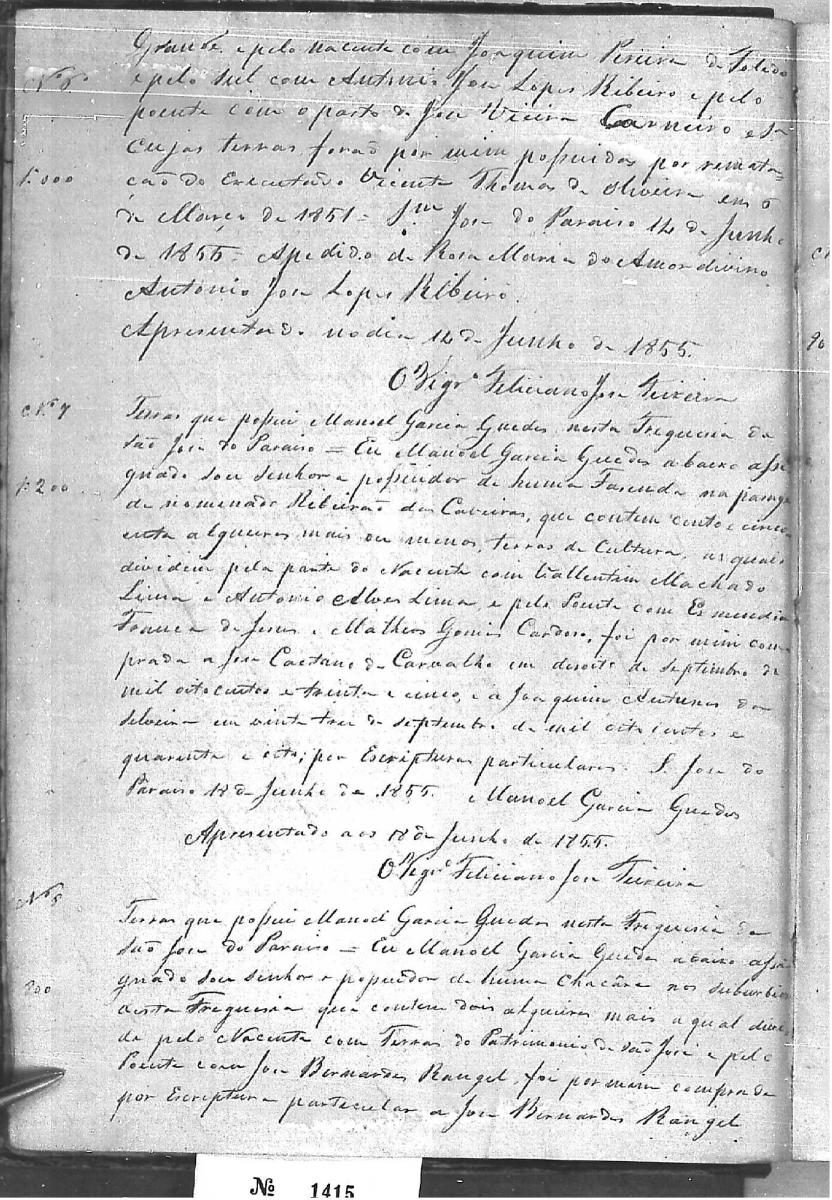 Grande, e pelo nacente com Joaquim Pereira de Toledo
e pelo sul com Antonio Jose Lopes Ribeiro e pelo
poente com o parto de Jose Vieira Carneiro e
cujas terras forão por mim possuidas por remata-
1$000
ção do Executado Vicente Thomas de Oliveira em 6
de Março de 1851 = Sm Jose do Paraiso 14 de Junho
de 1855 = Apedido de Rosa Maria do Amor divino
Antonio Jose Lopes Ribeiro.
Apresentado no dia 14 de Junho de 1855.
O Vigro Feliciano Jose Teixeira
No 7
Terras que possui Manoel Garcia Guedes nesta Freguesia de
São Jose do Paraiso = Eu Manoel Garcia Guedes abaixo assi
1$200
gnado sou senhor e possuidor de huma Fasenda na parage
denomenado Ribeirão das Caveiras, que contem cento e cinco
enta alqueires mais ou menos, terras de Cultura, as quaes
dividem pela parte do Nacente com Vallentim Machado
Lima e Antonio Alves Lima, e pelo Poente com Esmendia
Franca de Jesus e Matheos Gomes Cardoso, foi por mim com
prada a Jose Caetano de Carvalho em desoito de septembro de
mil oitocentos e trinta e cinco, e a Joaquim Antunes da
silveira em vinte trez de septembro de mil oito centos e
quarenta e oito; por Escripturas particulares. S. Jose do
Paraiso 18 de Junho de 1855. Manoel Garcia Guedes
Apresentado aos 18 de Junho de 1855.
O Vigro Feliciano Jose Teixeira
No 8
Terras que possui Manoel Garcia Guedes nesta Freguesia de
São Jose do Paraiso = Eu Manoel Garcia Guedes abaixo assi
gnado sou senhor e possuidor de huma Chacára nos suburbios
200
desta Freguesia que contem dois alqueires mais a qual divi
de pelo Nacente com Terras do Patrimonio de São Jose e pelo
Poente com Jose Bernardes Rangel, foi por mim comprada
por Escriptura particular a Jose Bernardes Rangel
No 1415